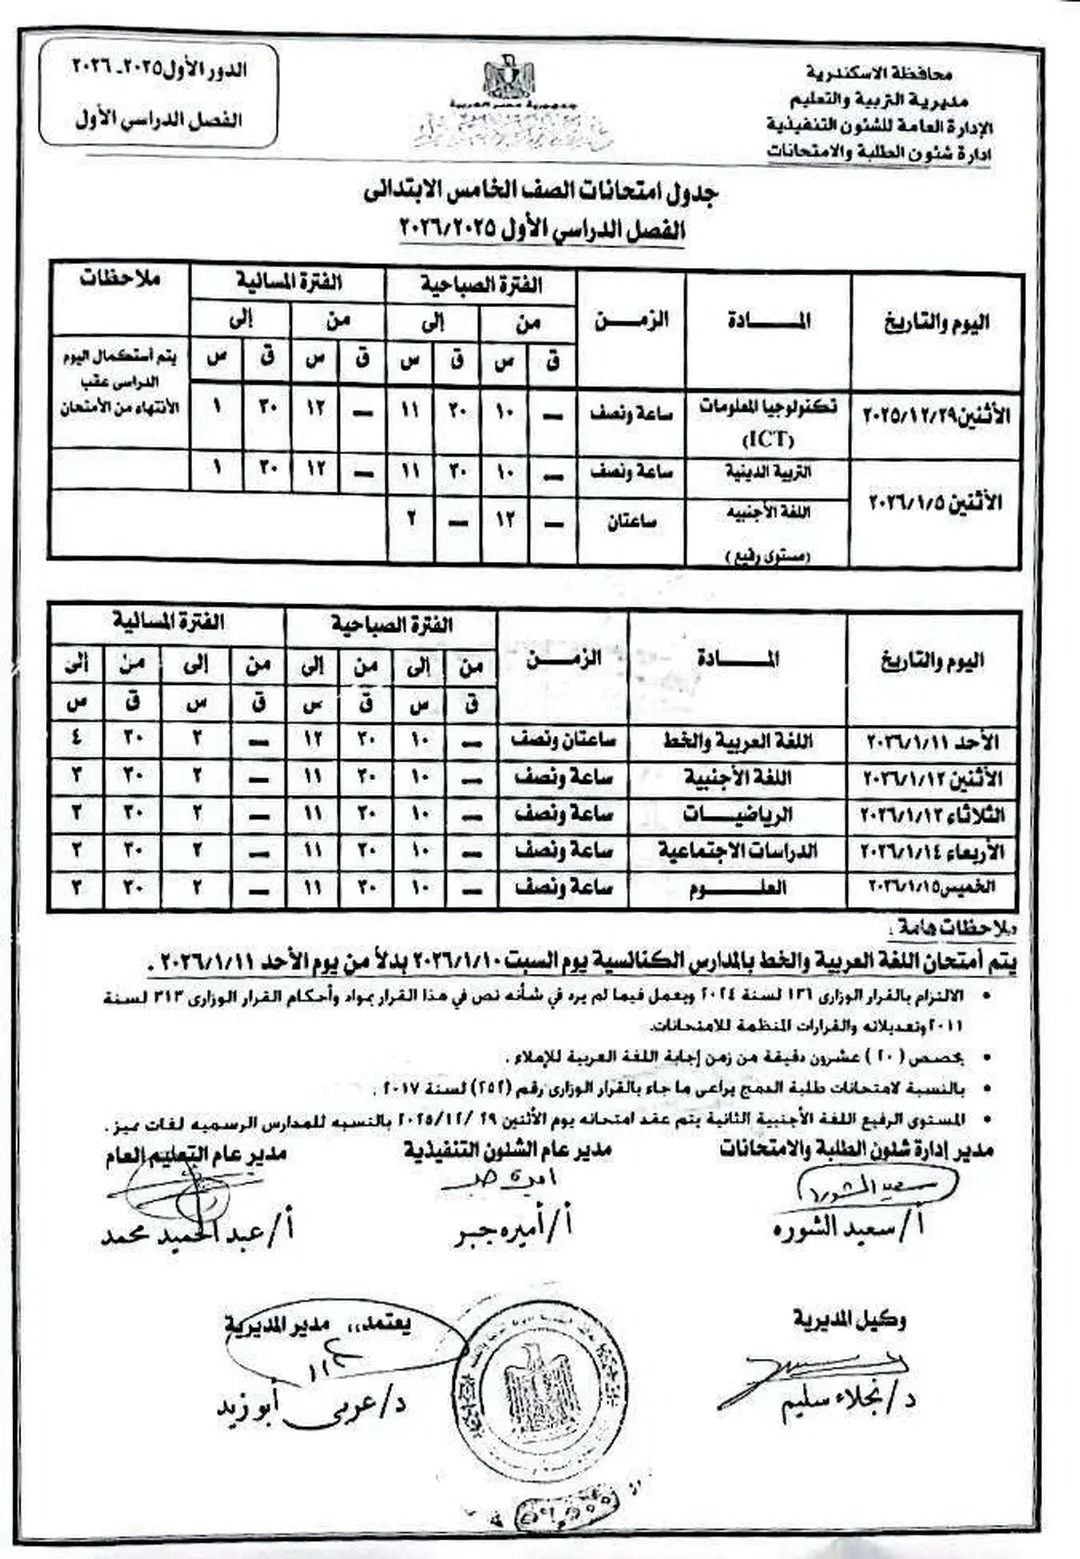 محافظة الاسكندرية
مديرية التربية والتعليم
الإدارة العامة للشئون التنفيذية
ادارة شئون الطلبة والامتحانات
جمهورية مصر العربية
الدور الأول ٢٠٢٥ـ ٢٠٢٦
الفصل الدراسي الأول
جدول امتحانات الصف الخامس الابتدائى
الفصل الدراسي الأول ٢٠٢٦/٢٠٢٥
اليوم والتاريخ المـــادة الزمـــن الفترة الصباحية الفترة المسائية ملاحظات
من إلى من إلى
ق س ق س ق س ق س
الأثنين ٢٠٢٥/١٢/٢٩ تكنولوجيا المعلومات (ICT) ساعة ونصف — ١٠ ٣٠ ١١ — ١٢ ٣٠ ١ يتم أستكمال اليوم الدراسى عقب الأنتهاء من الأمتحان
الأثنين ٢٠٢٦/١/٥ التربية الدينية ساعة ونصف — ١٠ ٣٠ ١١ — ١٢ ٣٠ ١
اللغة الأجنبيه (مستوى رفيع) ساعتان — ١٢ — ٢
اليوم والتاريخ المـــادة الزمـــن الفترة الصباحية الفترة المسائية
من إلى من إلى من إلى من إلى
ق س ق س ق س ق س
الأحد ٢٠٢٦/١/١١ اللغة العربية والخط ساعتان ونصف — ١٠ ٣٠ ١٢ — ٢ ٣٠ ٤
الأثنين ٢٠٢٦/١/١٢ اللغة الأجنبية ساعة ونصف — ١٠ ٣٠ ١١ — ٢ ٣٠ ٣
الثلاثاء ٢٠٢٦/١/١٣ الرياضيـــات ساعة ونصف — ١٠ ٣٠ ١١ — ٢ ٣٠ ٣
الأربعاء ٢٠٢٦/١/١٤ الدراسات الاجتماعية ساعة ونصف — ١٠ ٣٠ ١١ — ٢ ٣٠ ٣
الخميس ٢٠٢٦/١/١٥ العلـــوم ساعة ونصف — ١٠ ٣٠ ١١ — ٢ ٣٠ ٣
ملاحظات هامة :
يتم أمتحان اللغة العربية والخط بالمدارس الكنائسية يوم السبت ٢٠٢٦/١/١٠ بدلاً من يوم الأحد ٢٠٢٦/١/١١ .
• الالتزام بالقرار الوزارى ١٣٦ لسنة ٢٠٢٤ ويعمل فيما لم يرد في شأنه نص في هذا القرار بمواد وأحكام القرار الوزارى ٣١٣ لسنة
٢٠١١ وتعديلاته والقرارات المنظمة للامتحانات.
• يخصص (٢٠) عشرون دقيقة من زمن إجابة اللغة العربية للإملاء .
• بالنسبة لامتحانات طلبة الدمج يراعى ما جاء بالقرار الوزارى رقم (٢٥٢) لسنة ٢٠١٧ .
• المستوى الرفيع اللغة الأجنبية الثانية يتم عقد امتحانه يوم الأثنين ٢٩ /٢٠٢٥/١٢ بالنسبه للمدارس الرسميه لغات تميز .
مدير إدارة شئون الطلبة والامتحانات مدير عام الشئون التنفيذية مدير عام التعليم العام
سعيد الشوره أميرة جبر
أ/ سعيد الشوره أ/ أميره جبر أ/ عبد الحميد محمد
وكيل المديرية يعتمد،، مدير المديرية
د/ نجلاء سليم د/ عربى أبو زيد